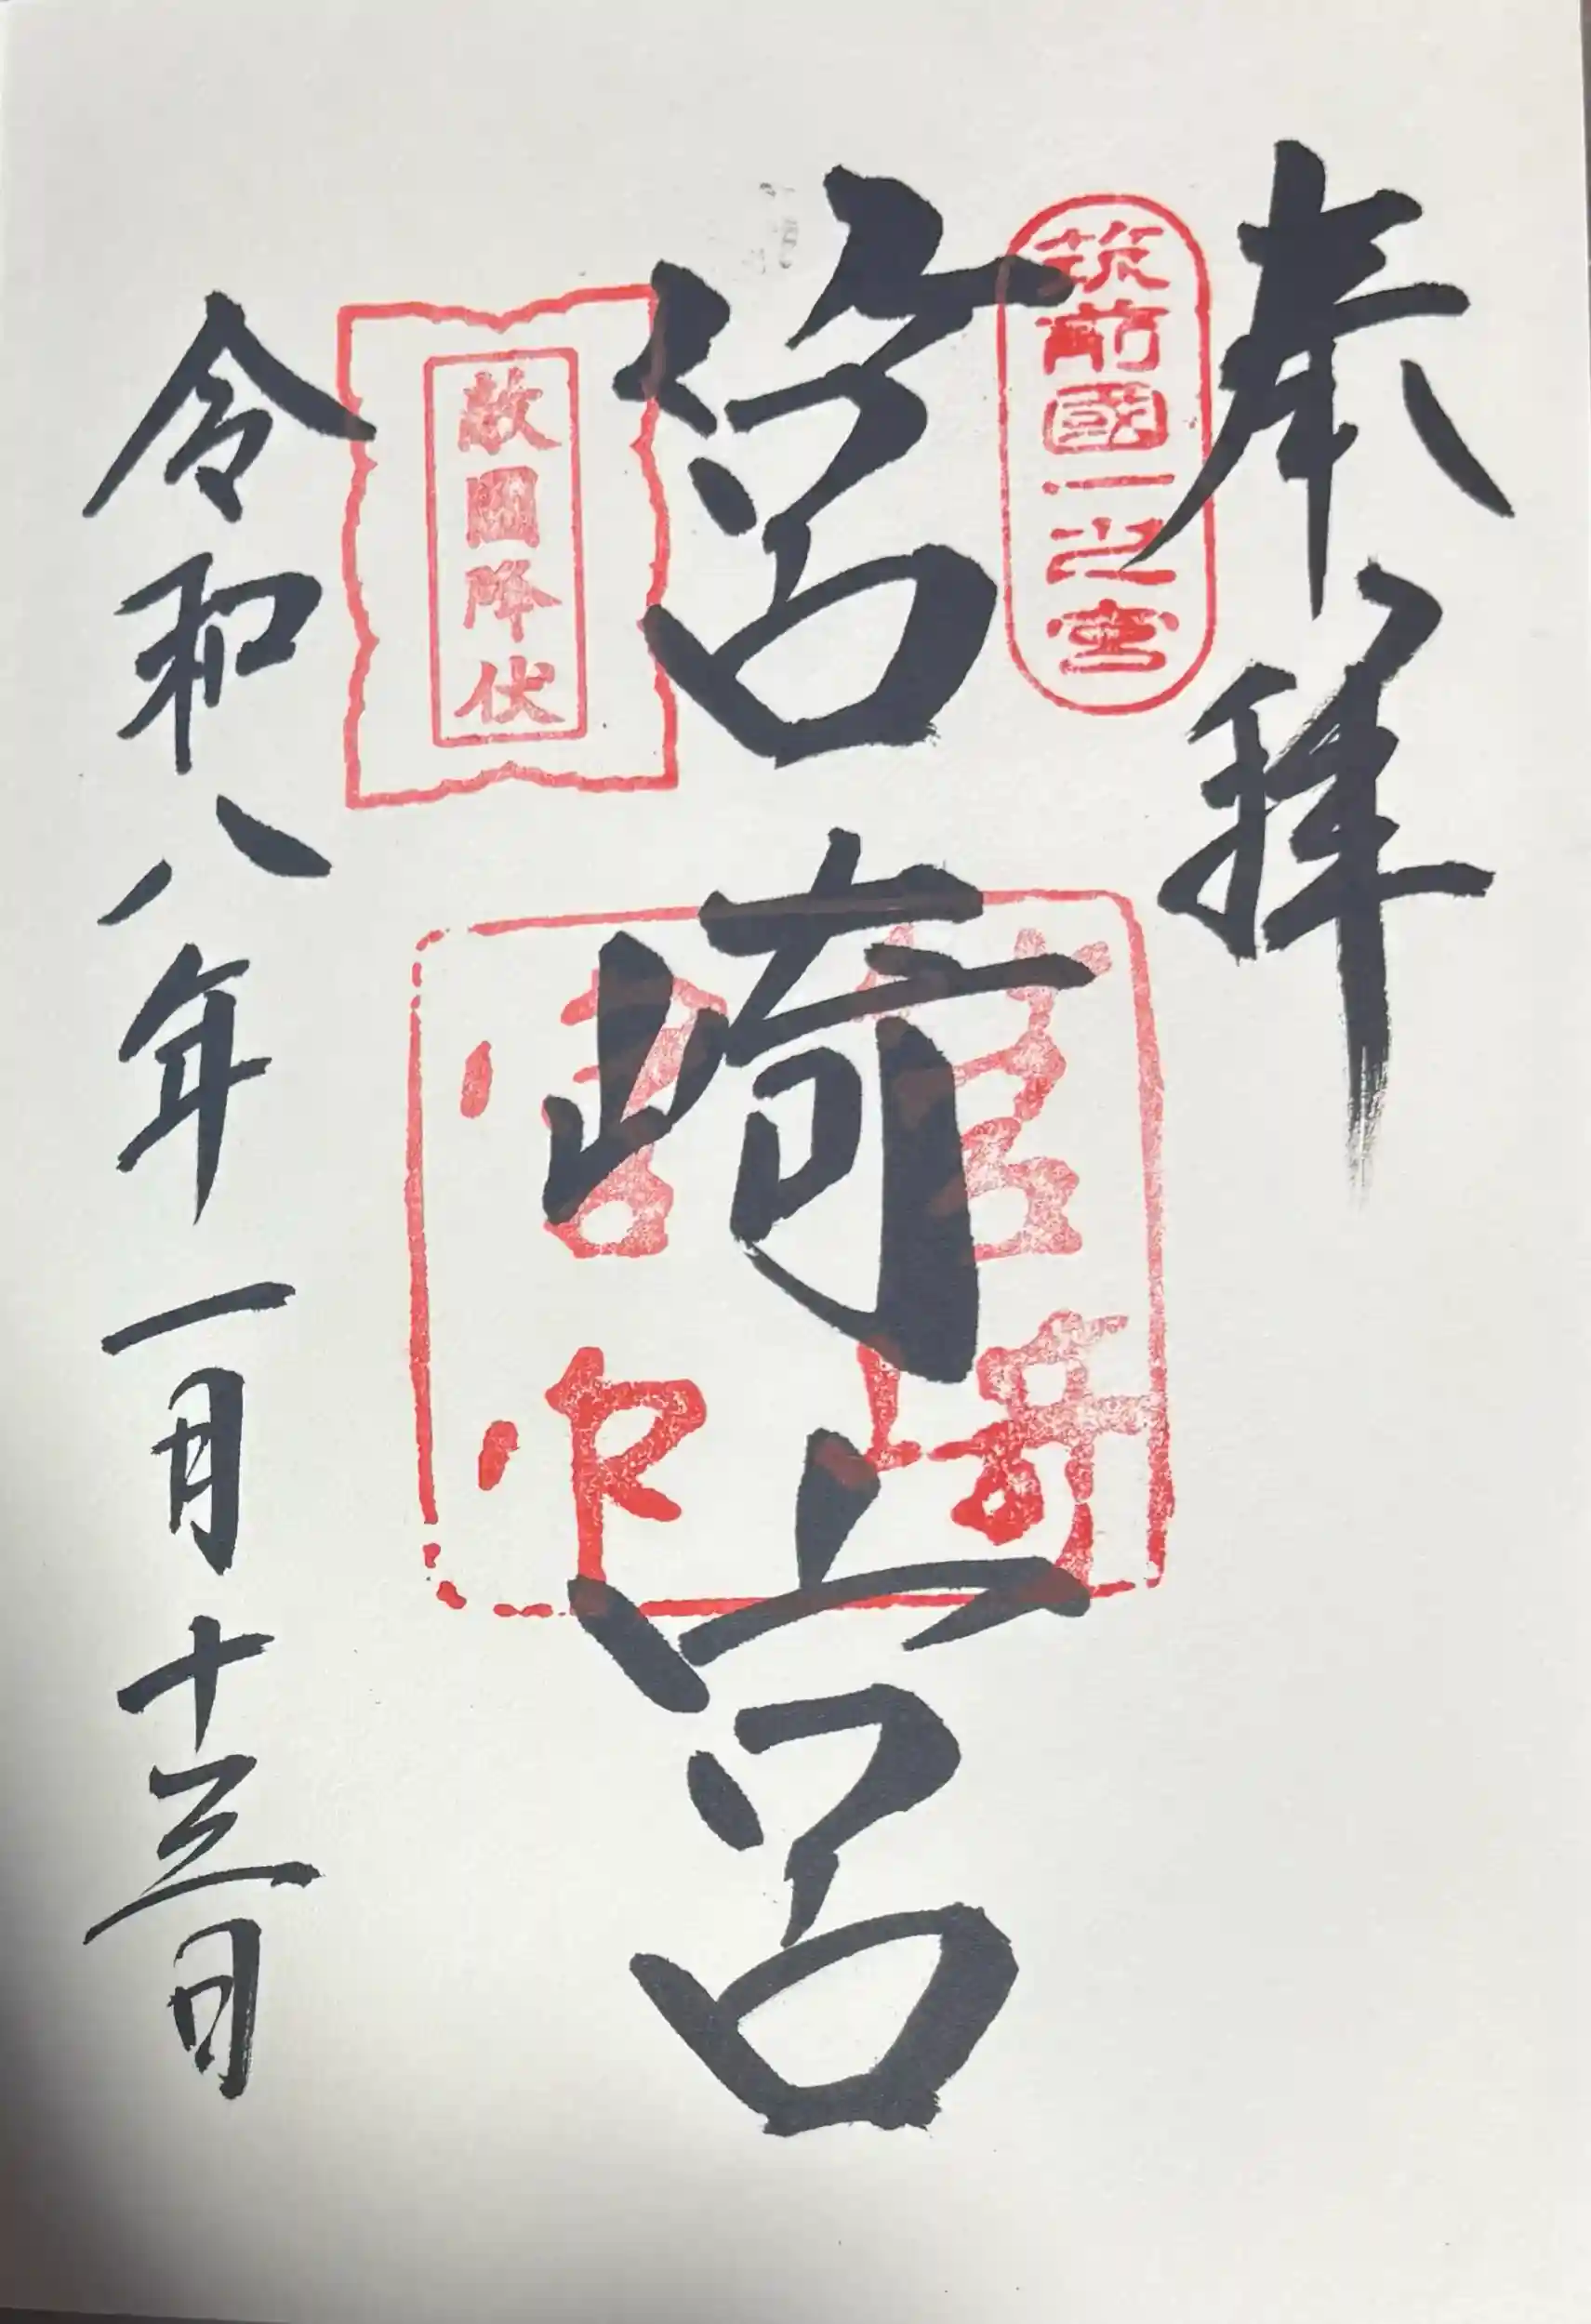 奉拝
筑前國一之宮
筥崎宮
筥崎
宮印
敵國降伏
令和八年一月十三日